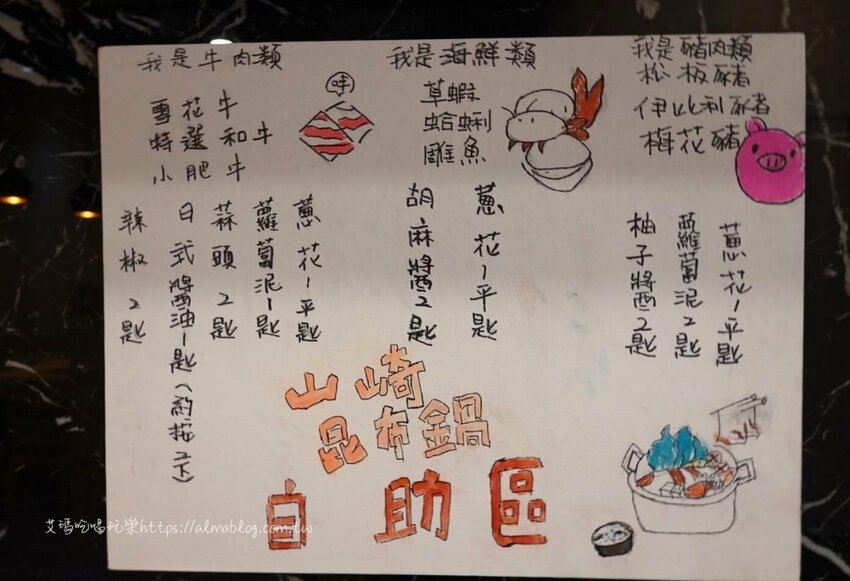 我是牛肉類
雪花牛
特選和牛
小肥牛
哞
蔥花1平匙
蘿蔔泥1匙
蒜頭2匙
日式醬油1匙(約按2下)
辣椒2匙
我是海鮮類
草蝦
蛤蜊
雕魚
蔥花1平匙
胡麻醬2匙
我是豬肉類
松板豬
伊比利豬
梅花豬
蔥花1平匙
蘿蔔泥2匙
柚子醬2匙
山崎
昆布鍋
自助區
艾瑪吃喝玩樂https://almablog.com.tw